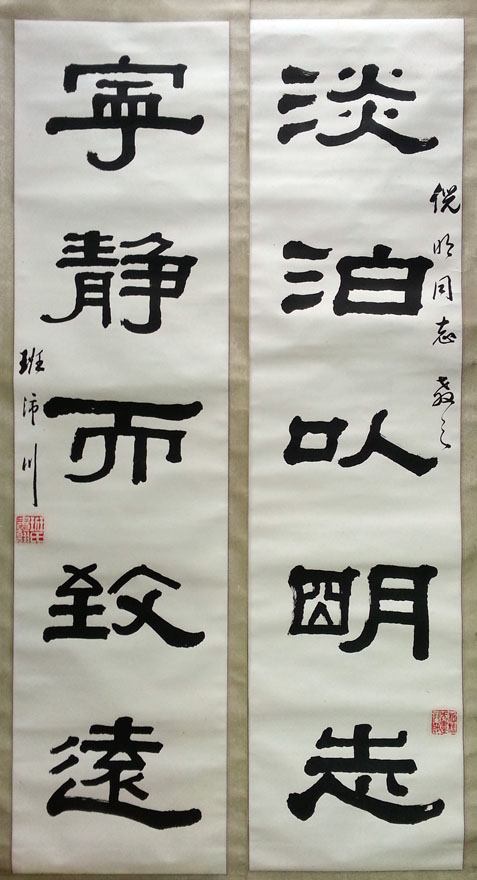 倪明同志 教之
淡泊以明志
寧静而致遠
班沛川